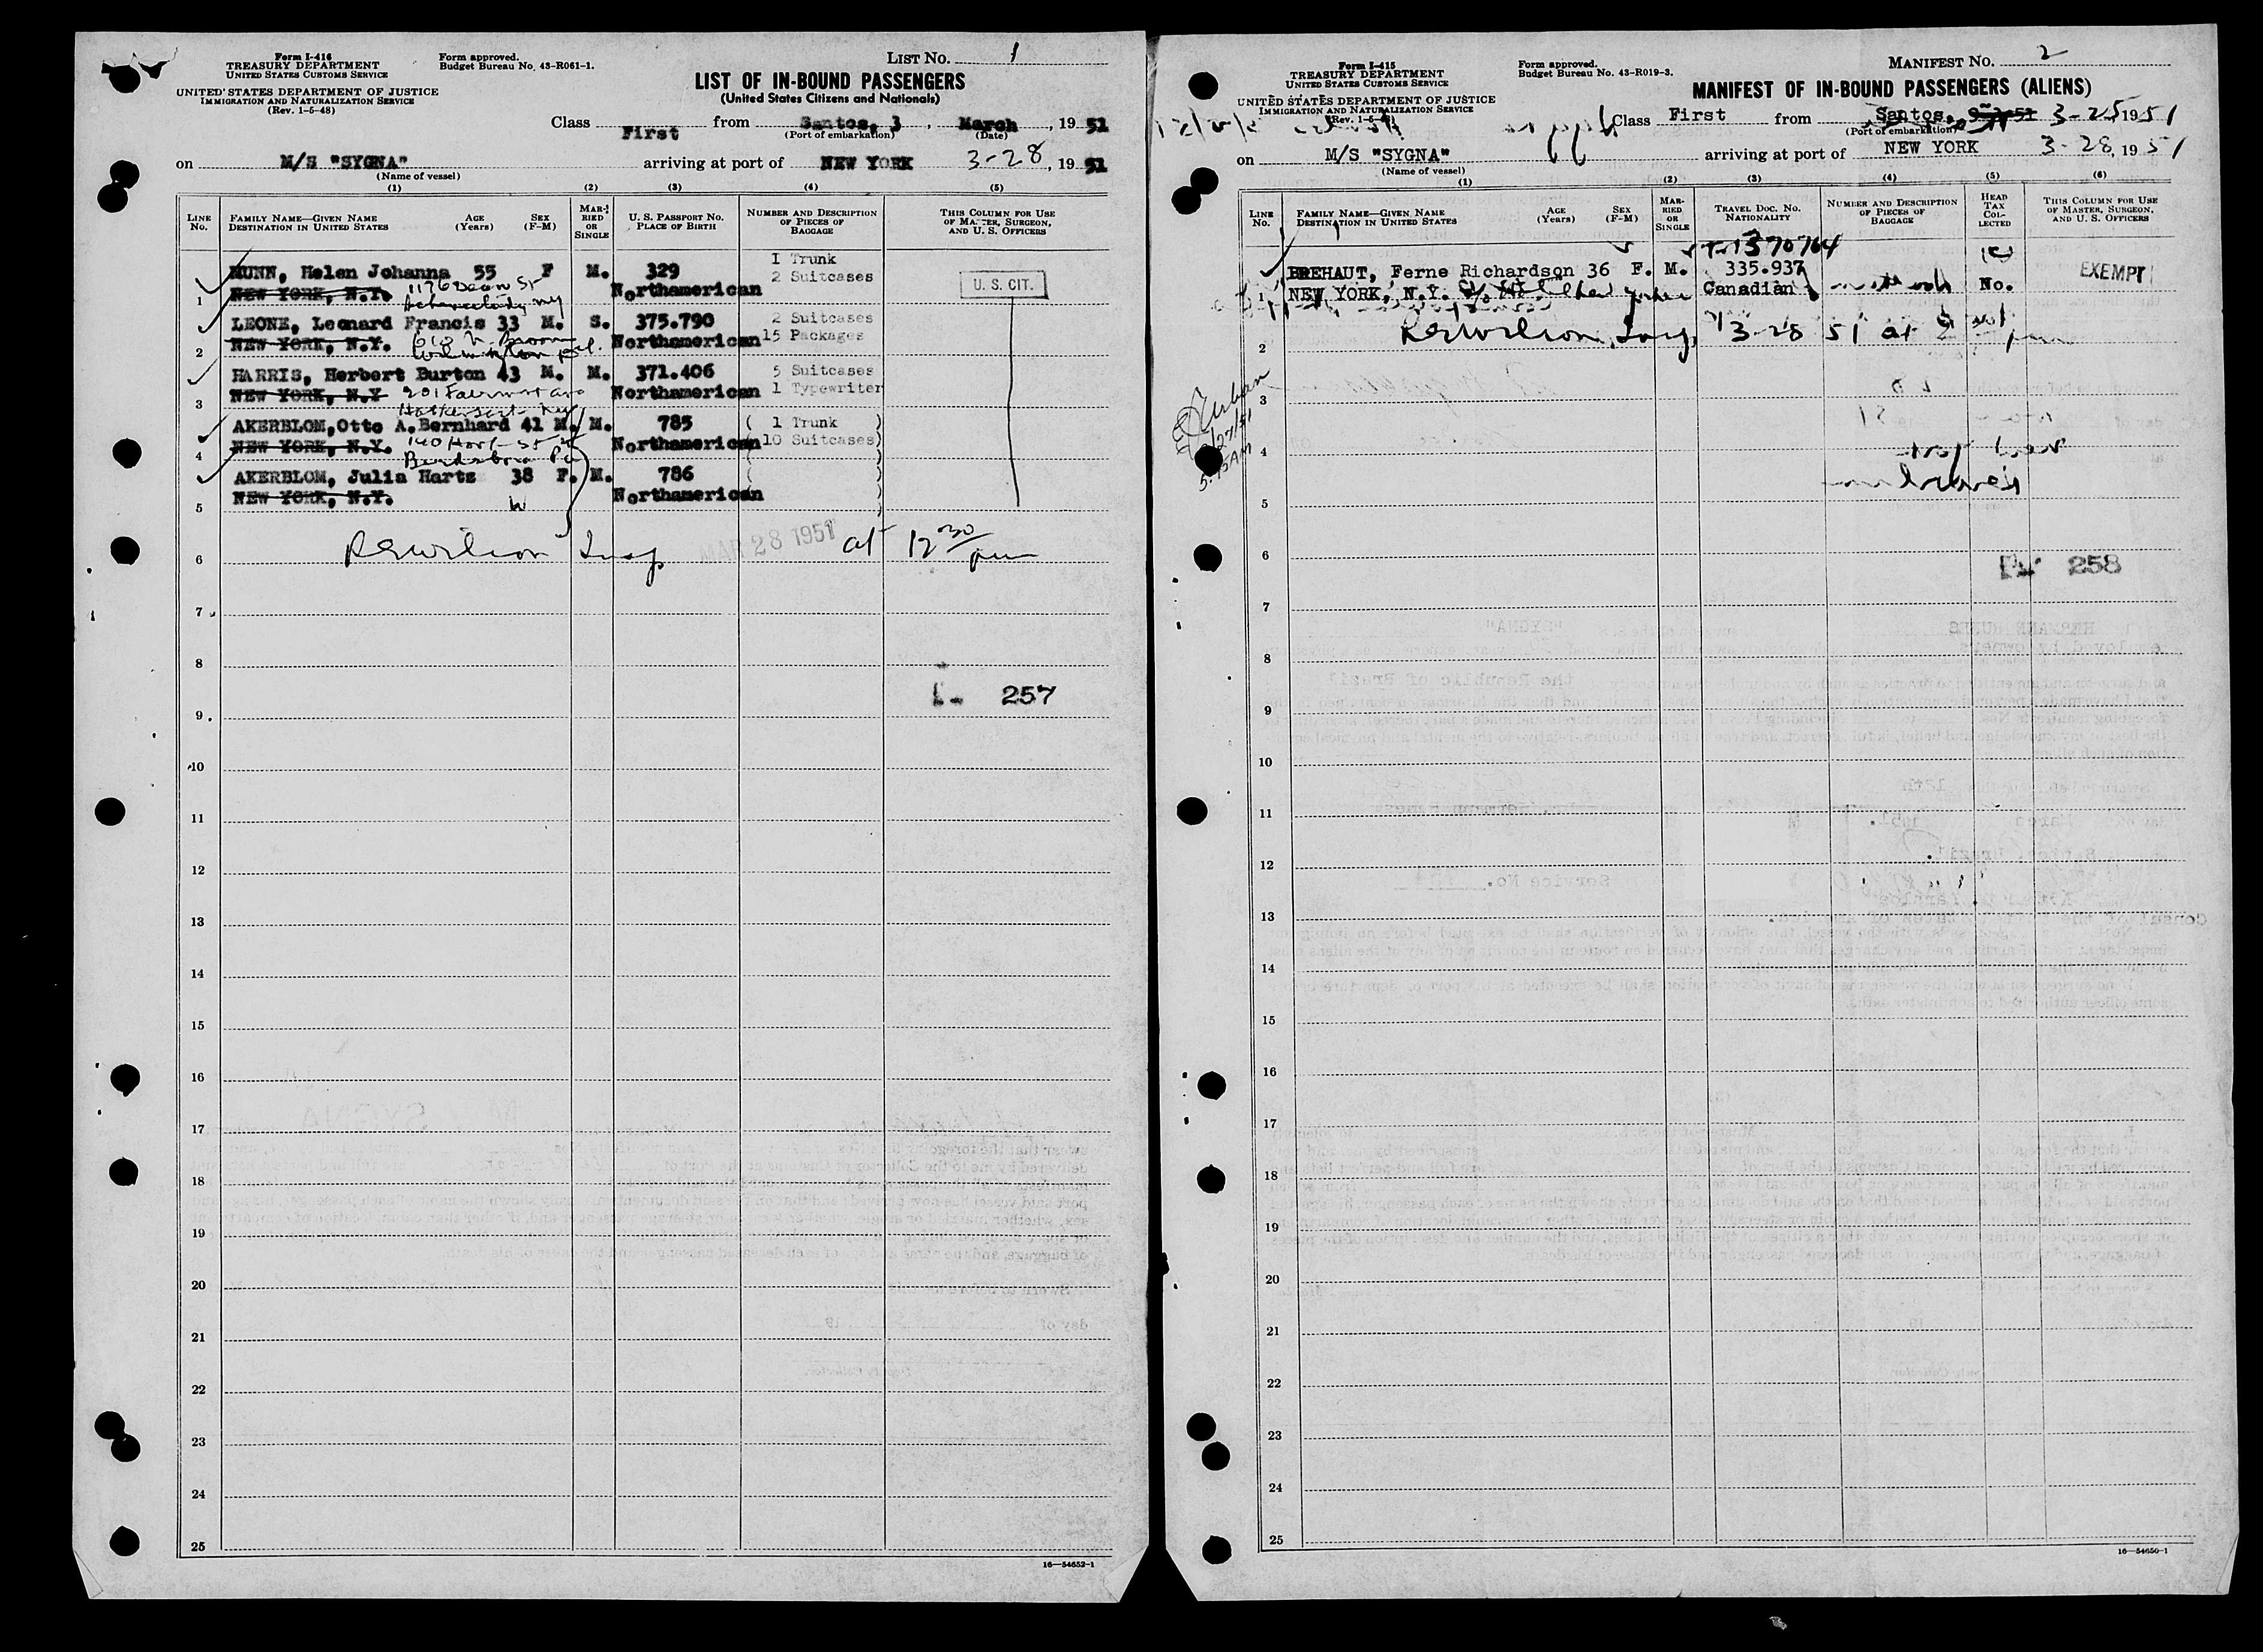 Form I-416
TREASURY DEPARTMENT
UNITED STATES CUSTOMS SERVICE
UNITED STATES DEPARTMENT OF JUSTICE
IMMIGRATION AND NATURALIZATION SERVICE
(Rev. 1-5-48)
Form approved.
Budget Bureau No. 43-R061-1.
LIST NO. 1
LIST OF IN-BOUND PASSENGERS
(United States Citizens and Nationals)
Class First from Santos, 3, March, 19 51
(Port of embarkation) (Date)
on M/S "SYGNA" arriving at port of NEW YORK 3-28, 19 51
(Name of vessel)
(1) (2) (3) (4) (5)
LINE No. FAMILY NAME—GIVEN NAME DESTINATION IN UNITED STATES AGE (Years) SEX (F-M) MARRIED OR SINGLE U. S. PASSPORT NO. PLACE OF BIRTH NUMBER AND DESCRIPTION OF PIECES OF BAGGAGE THIS COLUMN FOR USE OF MASTER, SURGEON, AND U. S. OFFICERS
MUNN, Helen Johanna 55 F M. 329 1 Trunk
1 NEW YORK, N.Y. 1176 Dean St Northamerican 2 Suitcases U. S. CIT.
Schenectady NY
LEONE, Leonard Francis 33 M. S. 375.790 2 Suitcases
2 NEW YORK, N.Y. Northamerican 15 Packages
Wilmington Del.
HARRIS, Herbert Burton 43 M. M. 371.406 5 Suitcases
3 NEW YORK, N.Y 201 Fairmont Ave Northamerican 1 Typewriter
AKERBLOM, Otto A. Bernhard 41 M. M. 785 ( 1 Trunk )
4 NEW YORK, N.Y. 140 St Northamerican (10 Suitcases)
Birdsboro Pa
AKERBLOM, Julia Hartz 38 F. M. 786
5 NEW YORK, N.Y. W Northamerican
6 REWilson Insp. MAR 28 1951 at 12 30 pm
7
8
257
9
10
11
12
13
14
15
16
17
18
19
20
21
22
23
24
25
16—54652-1
Form I-415
TREASURY DEPARTMENT
UNITED STATES CUSTOMS SERVICE
UNITED STATES DEPARTMENT OF JUSTICE
IMMIGRATION AND NATURALIZATION SERVICE
(Rev. 1-5-48)
Form approved.
Budget Bureau No. 43-R019-3.
MANIFEST NO. 2
MANIFEST OF IN-BOUND PASSENGERS (ALIENS)
Class First from Santos, 3-25 1951
(Port of embarkation)
on M/S "SYGNA" arriving at port of NEW YORK 3-28, 19 51
(Name of vessel)
(1) (2) (3) (4) (5) (6)
LINE No. FAMILY NAME—GIVEN NAME DESTINATION IN UNITED STATES AGE (Years) SEX (F-M) MARRIED OR SINGLE TRAVEL DOC. NO. NATIONALITY NUMBER AND DESCRIPTION OF PIECES OF BAGGAGE HEAD TAX COLLECTED THIS COLUMN FOR USE OF MASTER, SURGEON, AND U. S. OFFICERS
T-1370764
BREHAUT, Ferne Richardson 36 F. M. 335.937 EXEMPT
1 NEW YORK, N.Y. Canadian No.
2 REWilson, Insp. 3-28 51 at pm
3
4
5
6
258
7
8
9
10
11
12
13
14
15
16
17
18
19
20
21
22
23
24
25
16—54650-1